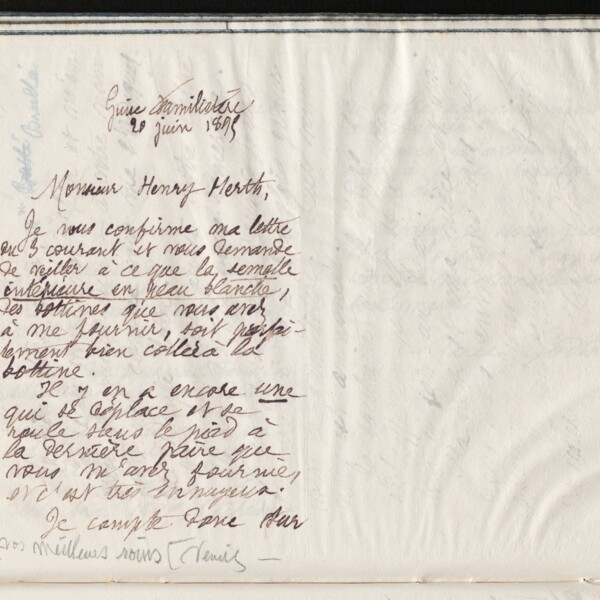 Guise Familistère
20 juin 1895
Monsieur Henry Merth,
Je vous confirme ma lettre
du 3 courant et vous demande
de veiller à ce que la semelle
intérieure en peau blanche,
des bottines que vous avez
à me fournir, soit parfai-
tement bien collée à la
bottine.
Il y en a encore une
qui se déplace et se
roule sous le pied à
la dernière paire que
vous m'avez fournie,
et c'est très ennuyeux.
Je compte donc sur
vos meilleurs soins